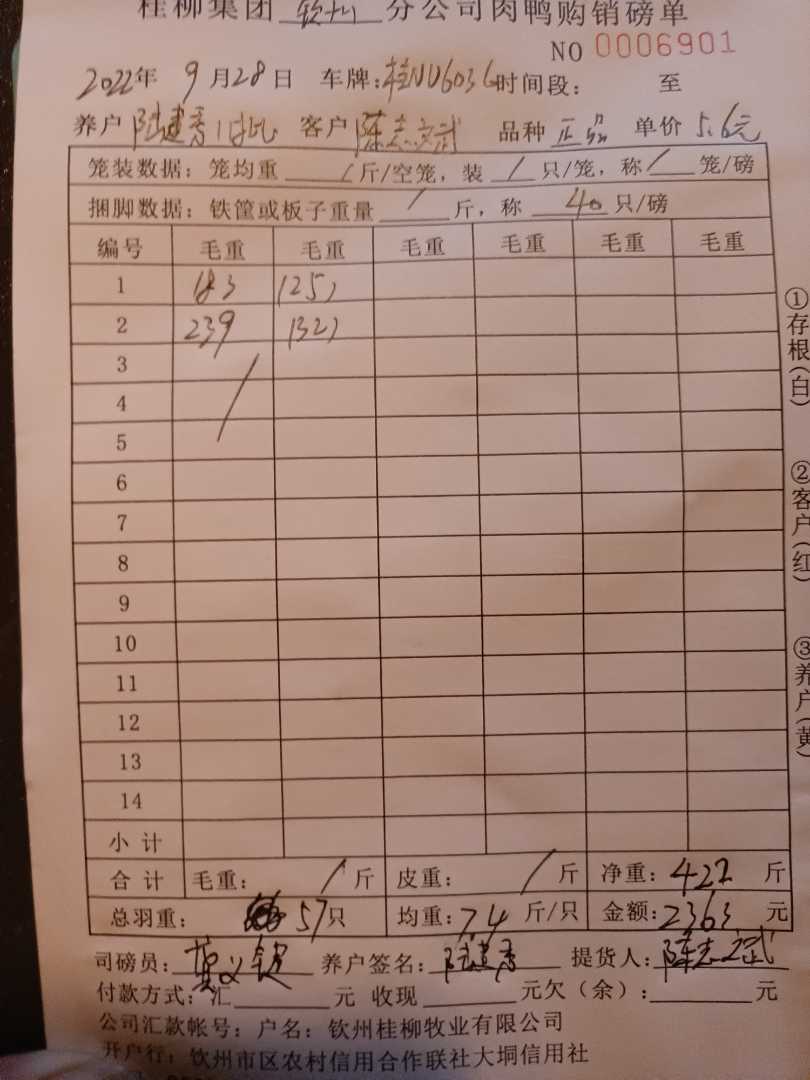 桂柳集团 钦州 分公司肉鸭购销磅单
NO 0006901
2022年 9月28日 车牌:桂NU6036 时间段: 至
养户 陆建秀 1批 客户 陈志文武 品种 正品 单价 5.6元
笼装数据: 笼均重 / 斤/空笼, 装 / 只/笼, 称 / 笼/磅
捆脚数据: 铁筐或板子重量 / 斤, 称 40 只/磅
编号 毛重 毛重 毛重 毛重 毛重 毛重
1 183 (25)
2 239 (32)
3
4
5
6
7
8
9
10
11
12
13
14
小计
合计 毛重: / 斤 皮重: / 斤 净重: 422 斤
总羽重: 57只 均重: 7.4 斤/只 金额: 2363 元
司磅员: 养户签名: 陆建秀 提货人: 陈志文武
付款方式: 汇 元 收现 元欠(余): 元
公司汇款帐号: 户名: 钦州桂柳牧业有限公司
开户行: 钦州市区农村信用合作联社大垌信用社
①存根(白)
②客户(红)
③养户(黄)